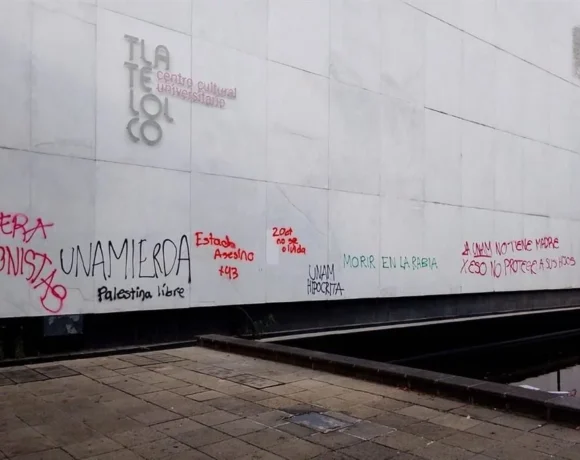 TLA
TE
LOL
CO
centro cultural
universitario
ERA
UNAMIERDA
Palestina libre
Estado
Asesino
+43
2 Oct
no se
olvida
UNAM
HIPOCRITA
MORIR EN LA RABIA
LA UNAM NO TIENE MADRE
X ESO NO PROTEGE A SUS HIJOS